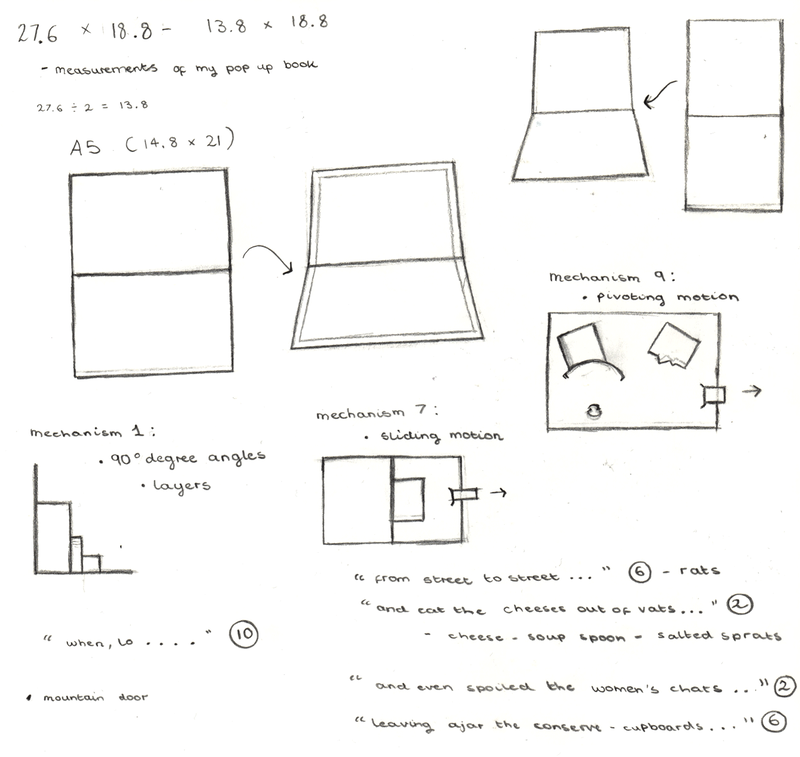 27.6 × 18.8 - 13.8 × 18.8
- measurements of my pop up book
27.6 ÷ 2 = 13.8
A5 (14.8 × 21)
mechanism 9:
• pivoting motion
mechanism 7:
• sliding motion
mechanism 1:
• 90° degree angles
• layers
"from street to street ..." 6 - rats
"and eat the cheeses out of vats..." 2
- cheese - soup spoon - salted sprats
"when, lo ...." 10
"and even spoiled the women's chats ..." 2
• mountain door
"leaving ajar the conserve - cupboards..." 6